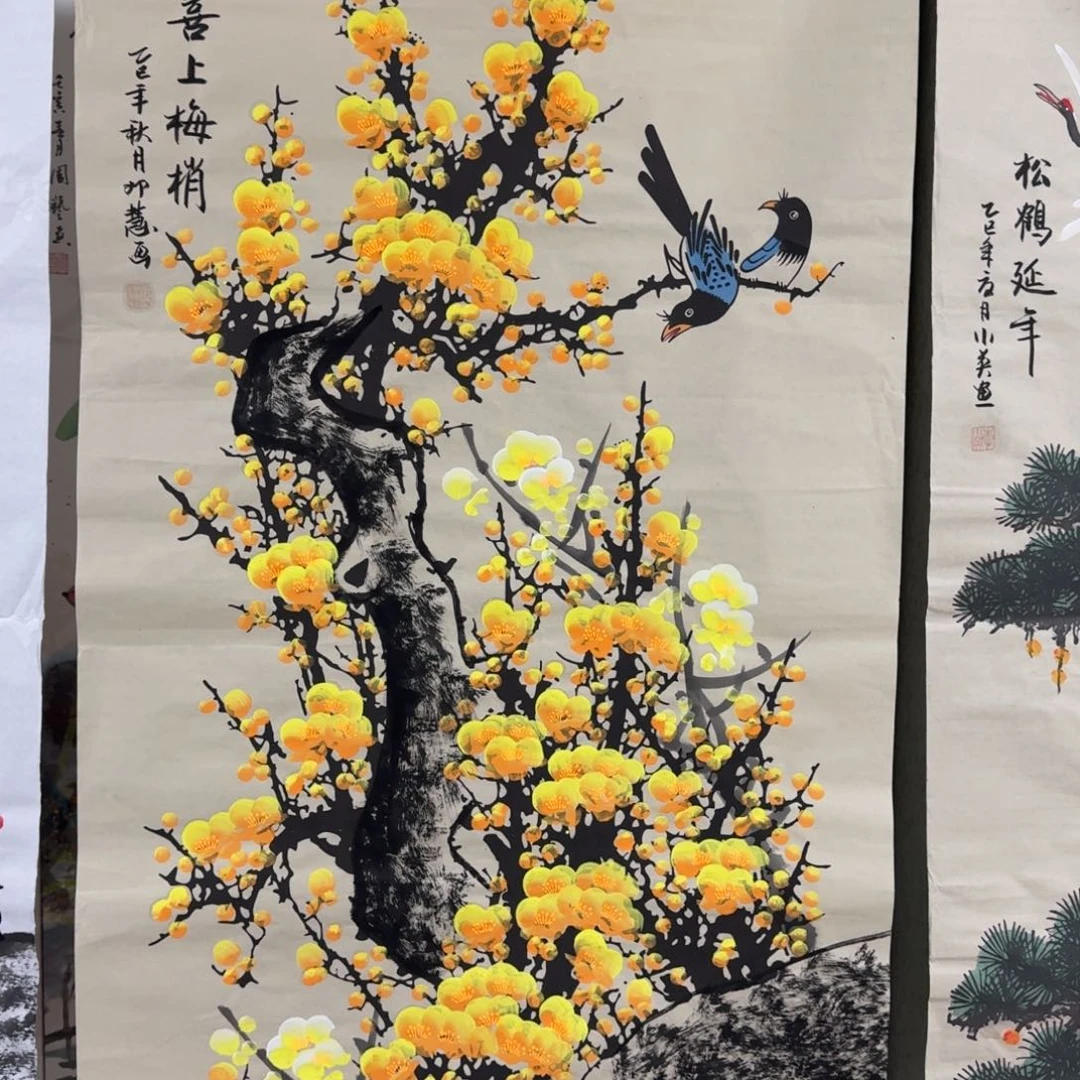 喜上梅梢
乙巳年秋月卯慧画
松鹤延年
乙巳年春月小英画